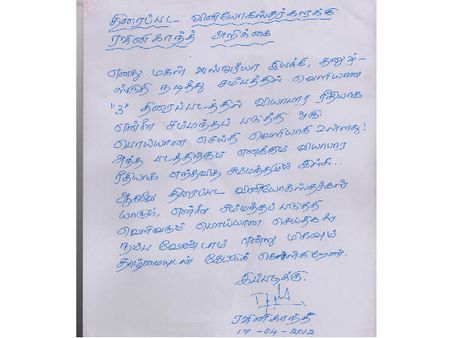 திரைப்பட வினியோகஸ்தர்களுக்கு
ரஜினிகாந்த் அறிக்கை
எனது மகள் ஐஸ்வர்யா இயக்கி, தனுஷ்-
ஸ்ருதி நடித்து சமீபத்தில் வெளியான
"3" திரைப்படத்தில் வியாபார ரீதியாக
என்னை சம்மந்தப் படுத்தி ஒரு
பொய்யான செய்தி வெளியாகி உள்ளது!
அந்த படத்திற்கும் எனக்கும் வியாபார
ரீதியாக எந்தவித சம்மந்தமும் இல்லை...
ஆகவே திரைப்பட வினியோகஸ்தர்கள்
யாரும், என்னை சம்மந்தப் படுத்தி
வெளிவரும் பொய்யான செய்திகளை
நம்ப வேண்டாம் என்று மிகவும்
தாழ்மையுடன் கேட்டுக் கொள்கிறேன்.
இப்படிக்கு
ரஜினிகாந்த்
17-04-2012